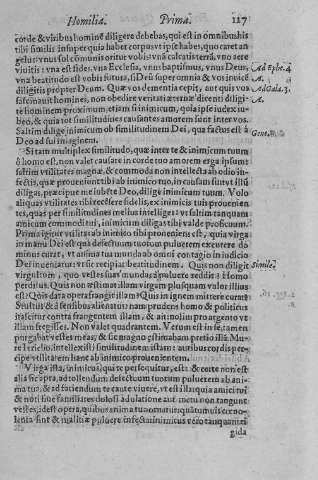 Homilia. Prima. 117
corde & visibus hominẽ diligere debebas, qui est in omnibus his
tibi similis insuper quia habet corpus vt ipse habes, quo caret an
gelus: vnus sol communis oritur vobis: vna calcatis terrã. vno aere
viuitis: vna est fides, vna Ecclesia, vnus baptismus, vnus Deus, Ad Ephe. 4
vna beatitudo est vobis futura, si Deũ super omnia & vos inuicẽ A.
diligitis propter Deum. Quæ vos dementia cepit, aut quis vos Ad Gala. 3.
fascinauit homines, non obedire veritati æternæ dirẽti diligi- A.
te hominem proximum, etiam si inimicum, quia ipse iudex iu-
bet, & quia tot similitudines causantes amorem sunt inter vos.
Saltim dilige inimicum ob similitudinem Dei, qua factus est à
Deo ad sui imaginem. Gene.
Si tam multiplex similitudo, quæ inter te & inimicum tuum
ô homo est, non valet causare in corde tuo amorem erga ipsum:
saltim vtilitates magnæ, & commoda non intellecta ab odio in-
fectis, quæ proueniunt tibi ab inimico tuo, in causam sint vt illũ
diligas, præcipue ne subste Deo, dilige inimicum tuum. Volo
aliquas vtilitates tibi recẽsere fidelis, ex inimicis tuis prouenien-
tes, quas per similitudines melius intelliges: vt saltim tanquam
amicum commoditati, inimicum diligas tibi valde proficuum.
Prima igitur vtilitas ab inimico tibi proueniens est, quia virga
in manu Dei est qua defectuum tuorum puluerem excutere do
minus curat, vt a vitiis tua mundus ab omni contagio in iudicio
Dei inueniatur vt sic recipiat beatitudinem. Quis non diligit Simile.
virgultum, quo vestes suas mundas à puluere reddit? Homo
perditus. Quis non æstimat illam virgam plusquam valor illius
est? Quis data opera frangit illam? Quis in ignem mittere curat?
Stultus & à sensibus alienatus nam prudens homo & politicus
irascitur contra frangentem illam, & ait: nolim pro argento vt
illam fregisses. Non valet quadrantem. Verum est in se, tamen
purgabat vestes meas, & sic magno æstimabam pretio illã. Mu-
cipe vtilitatem hanc ab inimico prouenientem.
Virga ista, inimicus, qui te persequitur, est: & certe non est
alia sic opta, ad tollendum defectuum tuorum puluerem ab ani-
ma tua, & ad faciendum te caute viuere, vt est illa: quia amici tui
& noti siue familiares dolosi adulatione aut metu non tangunt
vestes, id est opera, quibus anima tua ornatur quatumuis ex odo-
lentia sint & malitiæ puluere infectæ: inimicus vero tanquam vir
gula